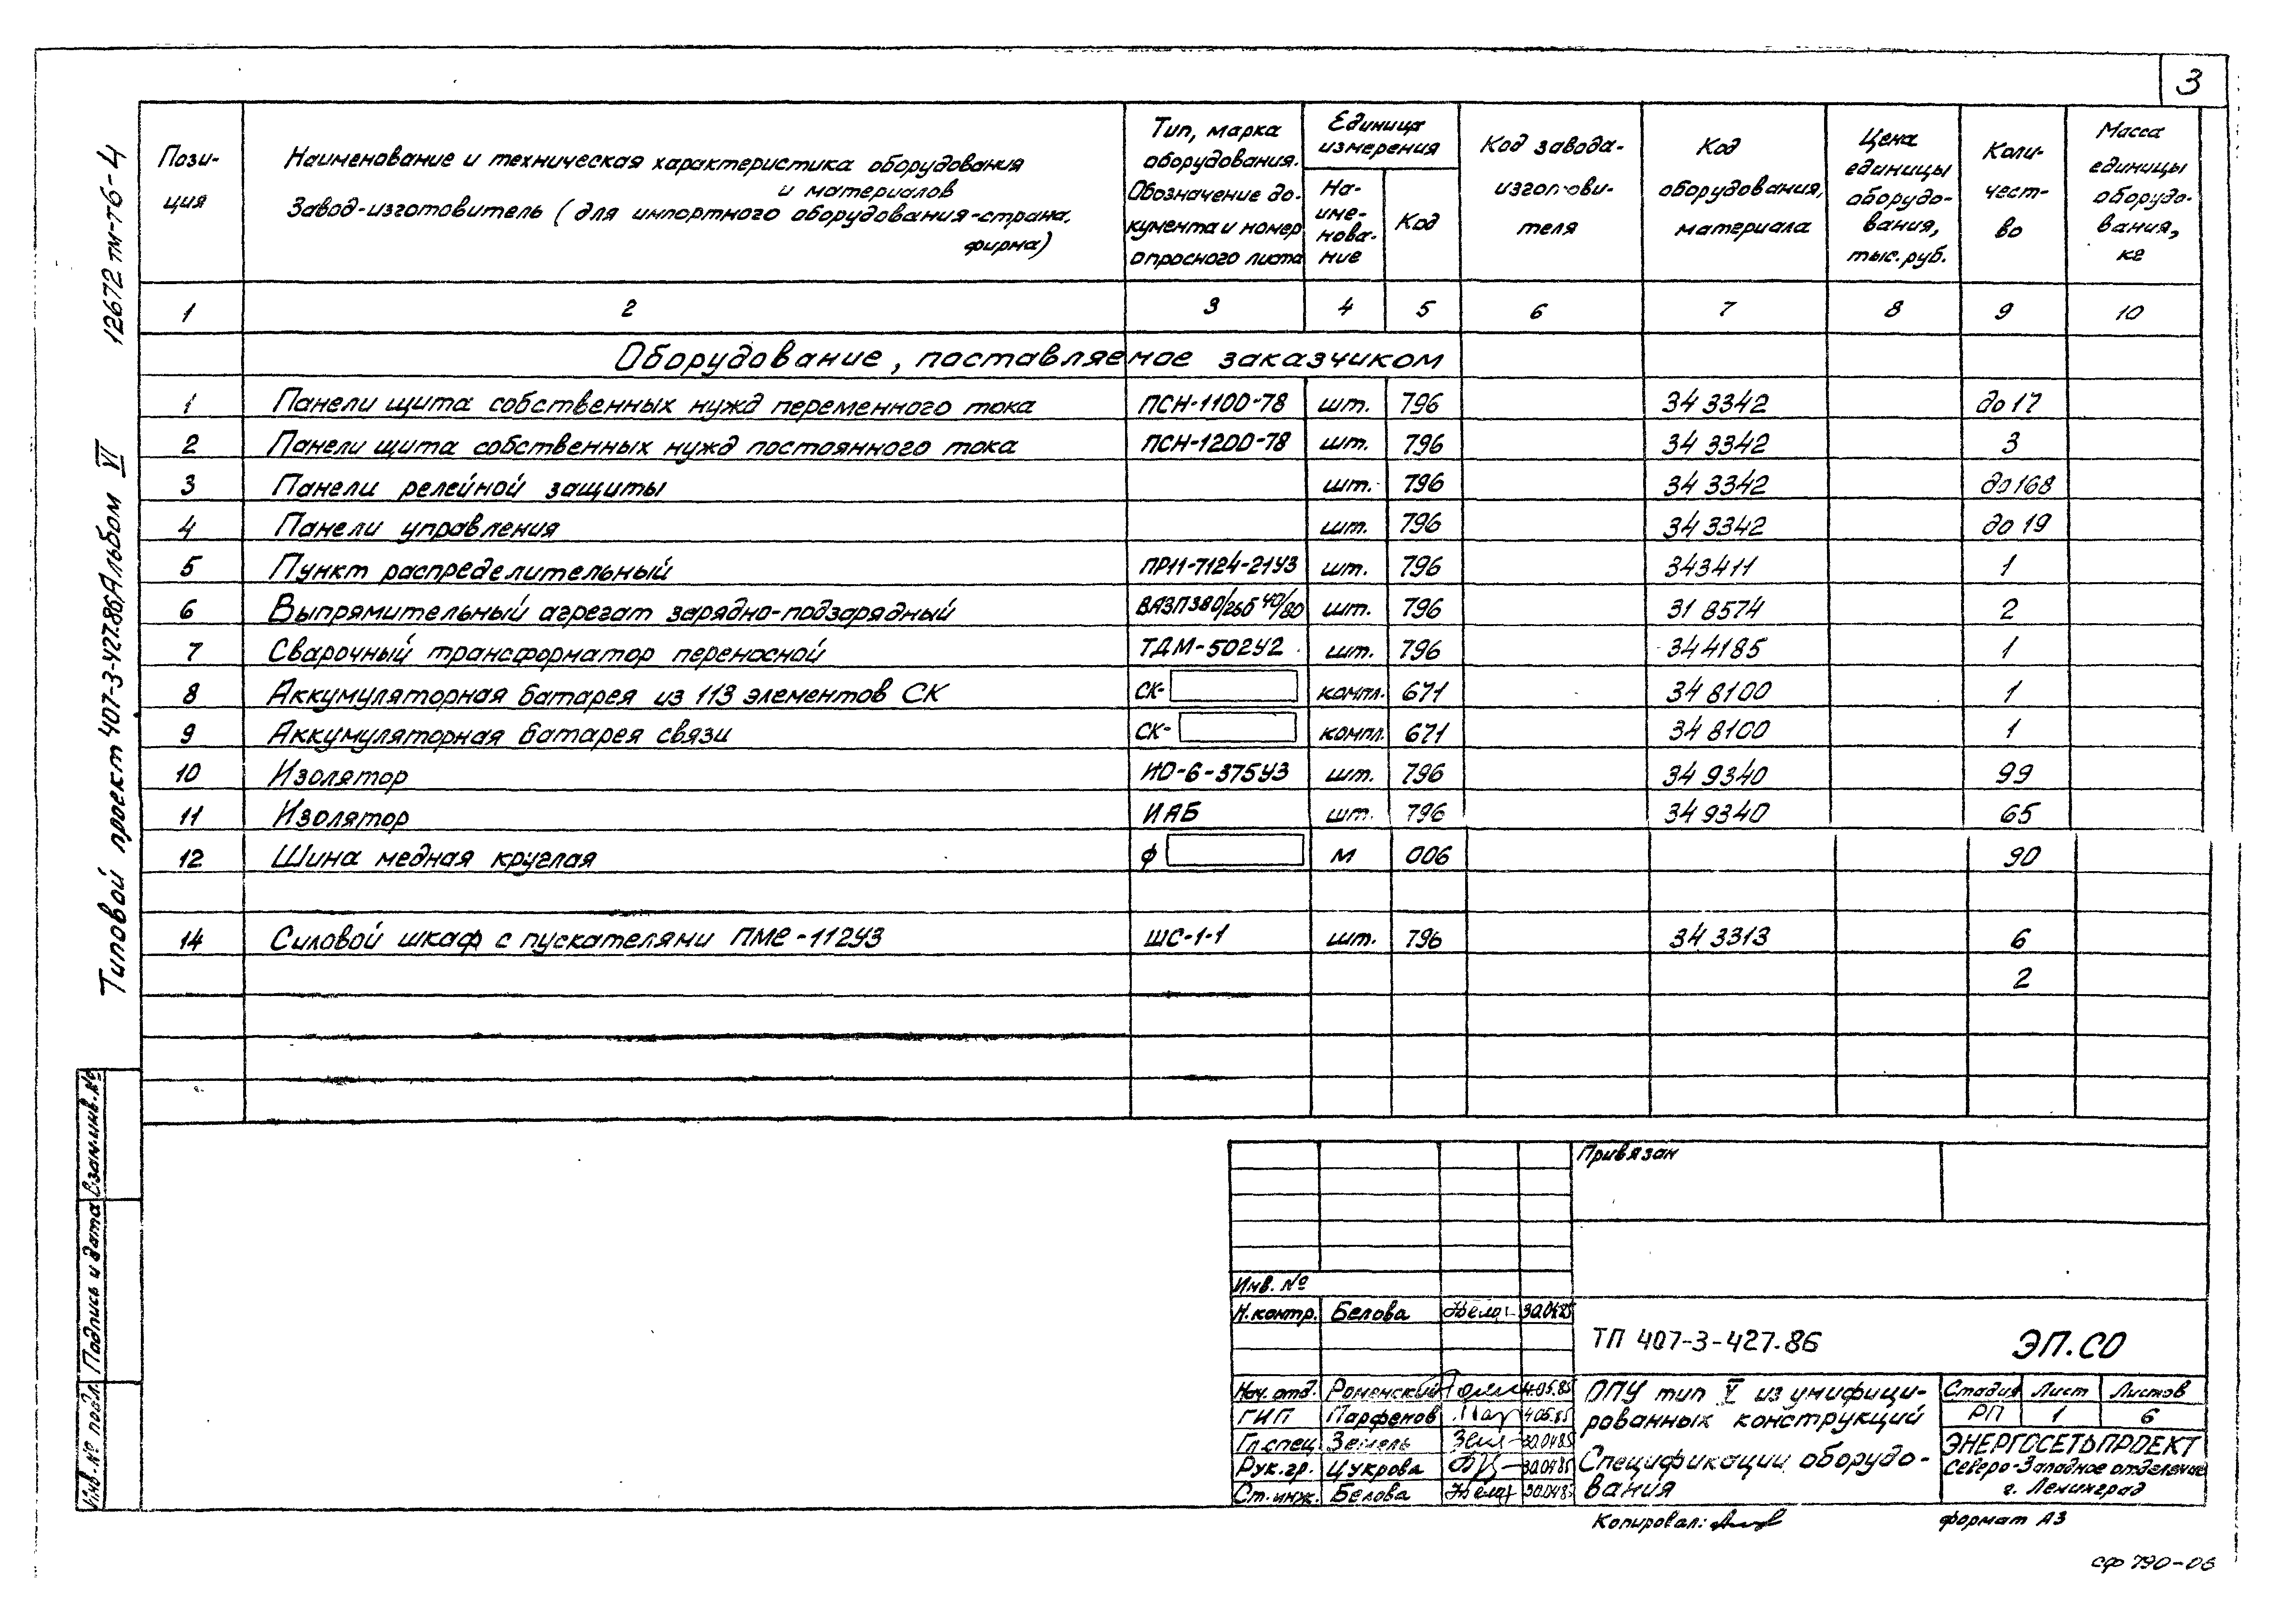 3
12672 тм-т6-4
Типовой проект 407-3-427.86 Альбом VI
Пози-
ция
Наименование и техническая характеристика оборудования
и материалов
Завод-изготовитель (для импортного оборудования-страна,
фирма)
Тип, марка
оборудования.
Обозначение до-
кумента и номер
опросного листа
Единица
измерения
На-
име-
нова-
ние
Код
Код завода-
изготови-
теля
Код
оборудования,
материала
Цена
единицы
оборудо-
вания,
тыс. руб.
Коли-
чест-
во
Масса
единицы
оборудо-
вания,
кг
1 2 3 4 5 6 7 8 9 10
Оборудование, поставляемое заказчиком
1 Панели щита собственных нужд переменного тока ПСН-1100-78 шт. 796 34 3342 до 17
2 Панели щита собственных нужд постоянного тока ПСН-1200-78 шт. 796 34 3342 3
3 Панели релейной защиты шт. 796 34 3342 до 168
4 Панели управления шт. 796 34 3342 до 19
5 Пункт распределительный ПР11-7124-21У3 шт. 796 343411 1
6 Выпрямительный агрегат зарядно-подзарядный ВАЗП380/260 40/80 шт. 796 31 8574 2
7 Сварочный трансформатор переносной ТДМ-502У2 шт. 796 344185 1
8 Аккумуляторная батарея из 113 элементов СК СК- компл. 671 34 8100 1
9 Аккумуляторная батарея связи СК- компл. 671 34 8100 1
10 Изолятор ИО-6-375У3 шт. 796 34 9340 99
11 Изолятор ИАБ шт. 796 34 9340 65
12 Шина медная круглая ф м 006 90
14 Силовой шкаф с пускателями ПМЕ-112У3 ШС-1-1 шт. 796 34 3313 6
2
Инв. № подл. Подпись и дата Взам.инв.№
Привязан
Инв. №
Н.контр. Белова 30.04.85
ТП 407-3-427.86 ЭП.СО
Нач. отд. Роменский 4.05.85
ГИП Парфенов 4.05.85
Гл.спец. Земель 30.04.85
Рук.гр. Цукрова 30.04.85
Ст.инж. Белова 30.04.85
ОПУ тип V из унифици-
рованных конструкций
Спецификации оборудо-
вания
Стадия Лист Листов
РП 1 6
ЭНЕРГОСЕТЬПРОЕКТ
Северо-Западное отделение
г. Ленинград
Копировал: формат А3
сф 790-06